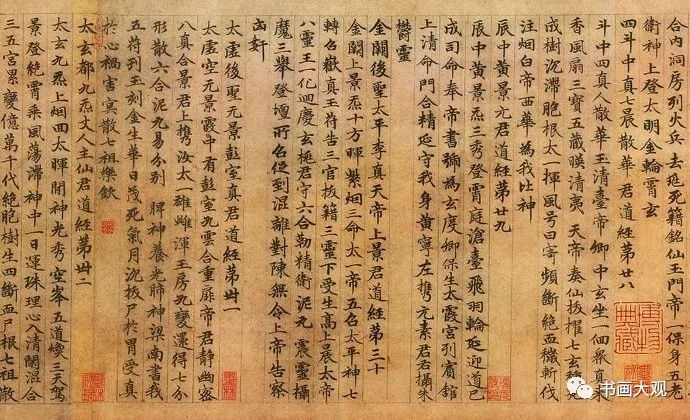 合內洞房列火兵去死籍銘仙王門帝一保身五老
衛神上登太明金輪霄玄
四斗中四真七辰散華君道經第廿八
斗中四真人散華玉清臺帝卿中玄坐一個眾真
香風扇三寶五藏暎清夷天帝奏仙拔擢七玄
成樹沉滯胞根太一揮風号曰寄頻斷絕血穢斬伐
注烟白帝西華為我比神
辰中黃景元君道經第廿九
辰中黃景炁三秀登霄庭滄臺飛羽輪延迎道己
成司命奉帝書號為玄度卿保生太霞宮列賓舘
上清命門合精延守我身黃寧左携元素君右攝朱
鬱靈
金闕後聖太平李真天帝上景君道經第三十
金闕上景炁十方暉紫烟三命太一帝五名太平神七
轉召歡真玉符告三官拔籍三靈下受生高上晨太帝
八靈王一化迴慶玄梃君守六合勒精衛泥丸震靈攝
魔三舉登壇所名促到混離對陳無令上帝告察
凶奸
太虛後聖元景彭室真君道經第卅一
太虛空元景霞中有彭室九雲合重扉帝君靜幽密
八真合景君上携汝太一雄雌渾王房九變還得七分
形散六合泥丸易分別脾神養光肺神梁南書我
五符列玉刻金生華日茂死氣月沉拔尸於胃受真
於心極害冥散七祖樂歡
太玄都九炁丈人主仙君道經第卅二
太玄九炁上烟四太暉開神光秀空峯五道煥三天駕
景登絕霄乘風蕩滯神中一日運珠理心入清閑混合
三五宮累變億萬千代絕胞樹生四斷血尸根七祖散
书画大观